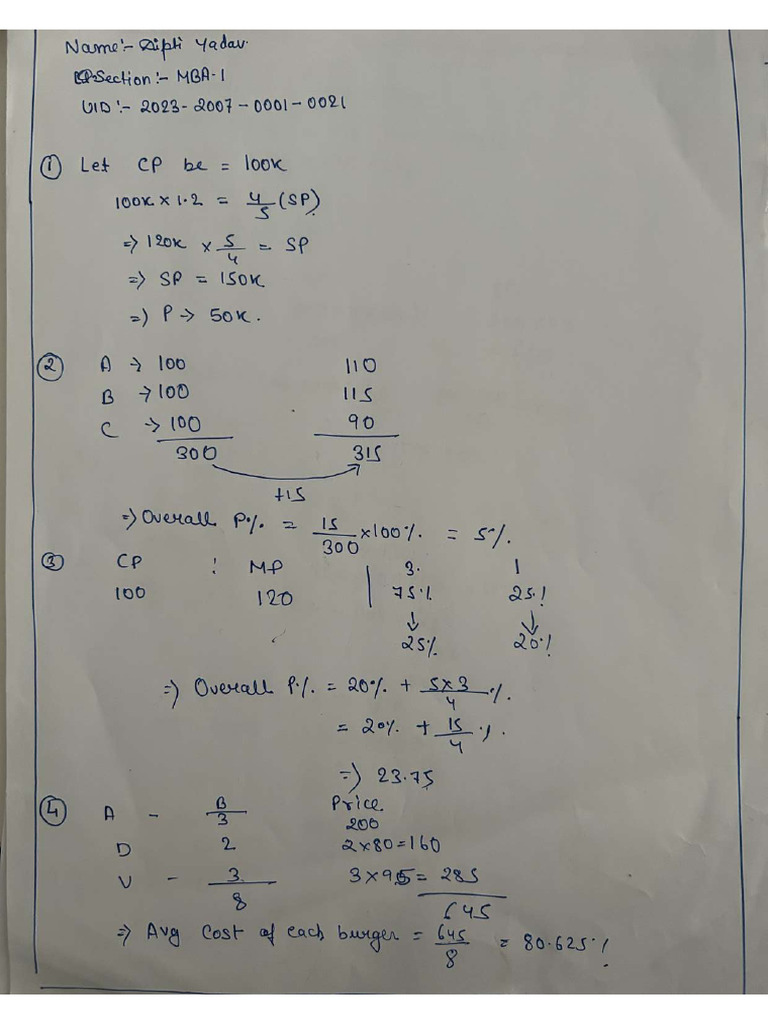 Name:- Dipti Yadav.
Section:- MBA-1
UID:- 2023-2007-0001-0021
① Let CP be = 100x
100x × 1.2 = 4/5 (SP)
=> 120x × 5/4 = SP
=> SP = 150x
=> P → 50x.
② A → 100 110
B → 100 115
C → 100 90
300 315
+15
=> Overall P% = 15/300 × 100% = 5%.
③ CP : MP | 3. 1
100 120 75% 25%
↓ ↓
25% 20%
=> Overall P% = 20% + 5×3/4 %.
= 20% + 15/4 %.
=> 23.75
④ B Price
A - 3 200
D 2 2×80=160
V - 3 3×95= 285
8 645
=> Avg cost of each burger = 645/8 = 80.625%